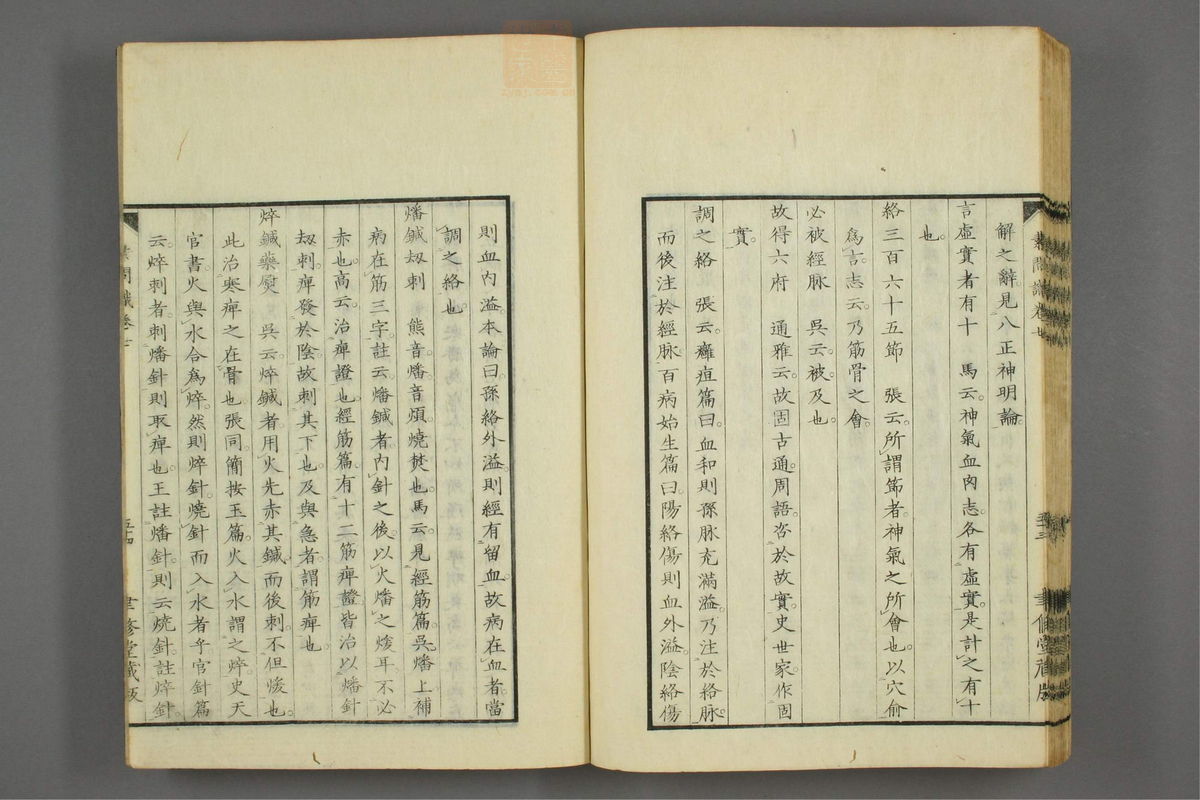 解之辭見八正神明論
言虛實者有十　馬云。神氣血肉志。各有虛實。是計之有十
也。
絡三百六十五節　張云。所謂節者神氣之所會也。以穴俞
爲言。志云。乃筋骨之會。
必被經脉　吳云。被及也。
故得六府　通雅云。故固古通。周語咨於故實。史世家作固
實。
調之絡　張云。癰疽篇曰。血和則孫脉充滿溢。乃注於絡脉。
而後注於經脉。百病始生篇曰。陽絡傷則血外溢。陰絡傷
則血內溢。本論曰。孫絡外溢。則經有留血。故病在血者。當
調之絡也。
燔鍼劫刺　熊音。燔音煩。燒焚也。馬云。見經筋篇。吳燔上補
病在筋三字。註云。燔鍼者。內針之後。以火燔之煖耳。不必
赤也。高云。治痺證也。經筋篇。有十二筋痺證。皆治以燔針
劫刺。痺發於陰。故刺其下也。及與急者。謂筋痺也。
焠鍼藥熨　吳云。焠鍼者。用火先赤其鍼而後刺。不但煖也。
此治寒痺之在骨也。張同。簡按玉篇。火入水謂之焠。史天
官書。火與水合爲焠。然則焠針。燒針而入水者乎。官針篇
云。焠刺者。刺燔針則取痺也。王註燔針。則云燒針。註焠針。
素問識卷七
五十四
聿修堂藏版